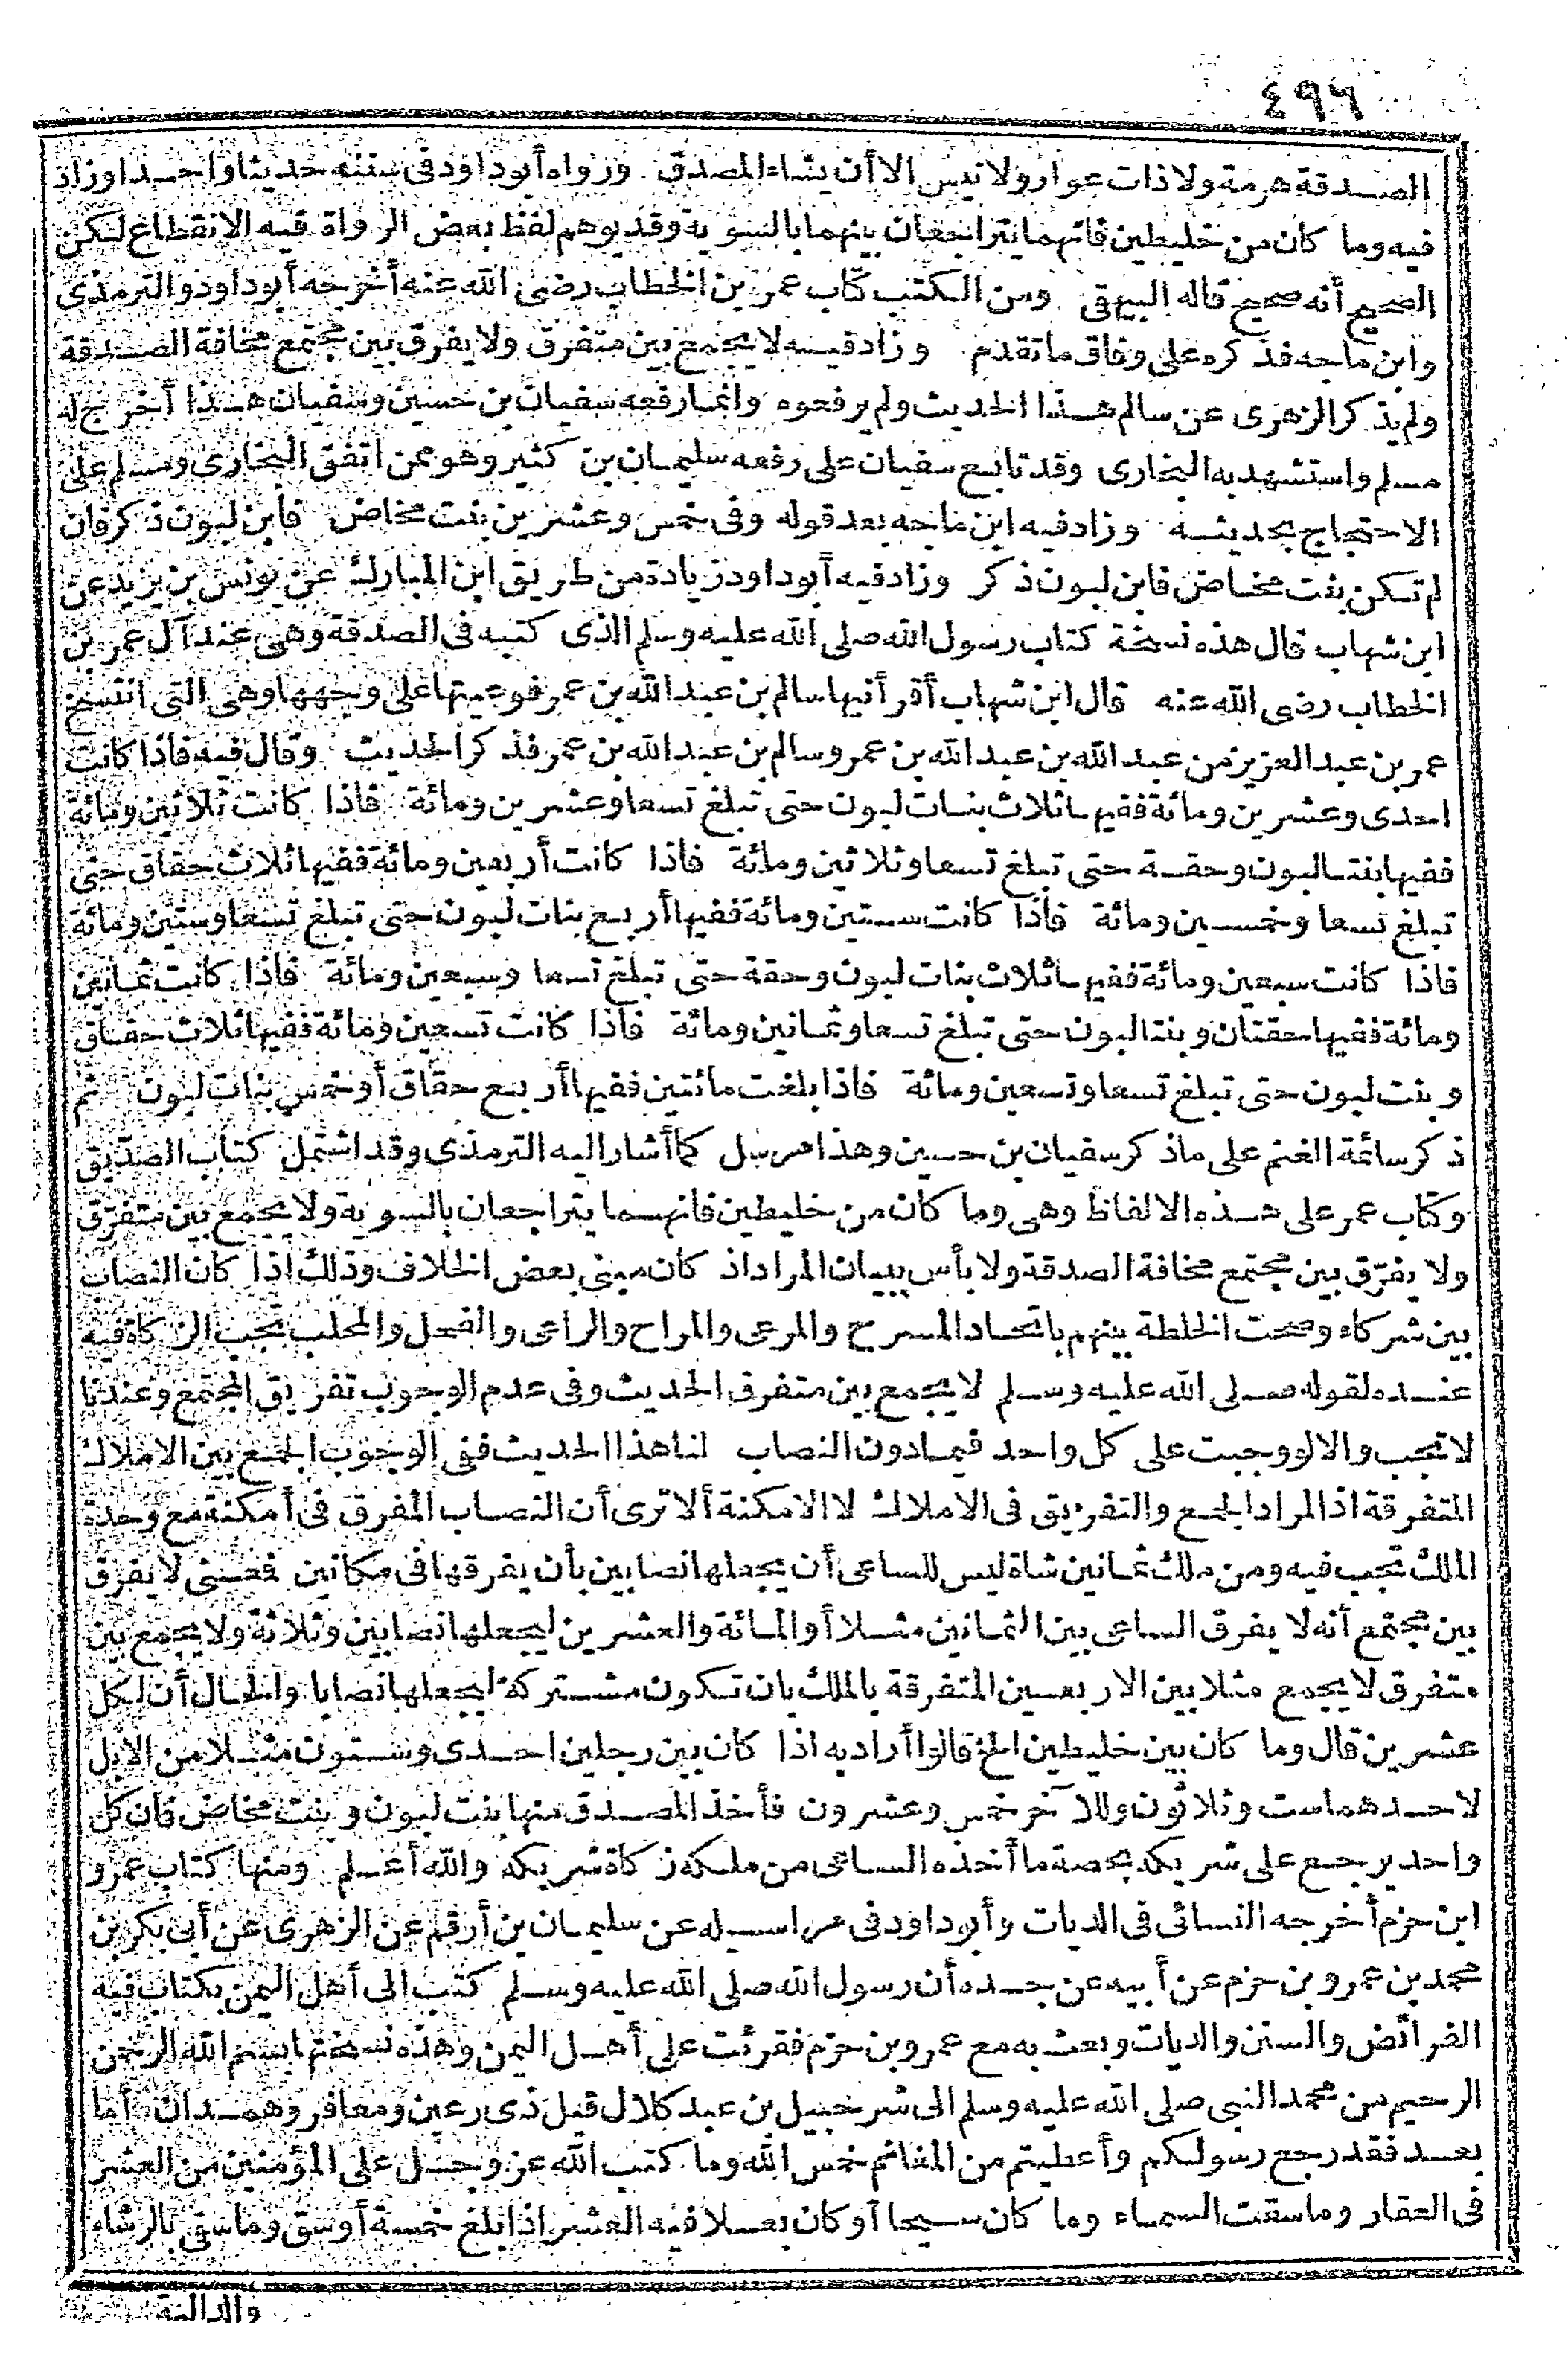 ٤٩٦
الصدقة هرمة ولا ذات عوار ولا تيس الا أن يشاء المصدق ورواه أبوداود فى سننه حديثا واحدا وزاد
فيه وما كان من خليطين فانهما يتراجعان بينهما بالسوية وقد يوهم لفظ بعض الرواة فيه الانقطاع لكن
الصحيح أنه صحيح قاله البيهقى ومن الكتب كتاب عمر بن الخطاب رضى الله عنه أخرجه أبوداود والترمذى
وابن ماجه فذكره على وفاق ما تقدم وزاد فيه لا يجمع بين متفرق ولا يفرق بين مجتمع مخافة الصدقة
ولم يذكر الزهرى عن سالم هذا الحديث ولم يرفعوه وانما رفعه سفيان بن حسين وسفيان هذا أخرج له
مسلم واستشهد به البخارى وقد تابع سفيان على رفعه سليمان بن كثير وهو ممن اتفق البخارى ومسلم على
الاحتجاج بحديثه وزاد فيه ابن ماجه بعد قوله وفى خمس وعشرين بنت مخاض فابن لبون ذكر فان
لم تكن بنت مخاض فابن لبون ذكر وزاد فيه أبوداود زيادة من طريق ابن المبارك عن يونس بن يزيد عن
ابن شهاب قال هذه نسخة كتاب رسول الله صلى الله عليه وسلم الذى كتبه فى الصدقة وهى عند آل عمر بن
الخطاب رضى الله عنه قال ابن شهاب أقرأنيها سالم بن عبد الله بن عمر فوعيتها على وجهها وهى التى انتسخ
عمر بن عبد العزيز من عبد الله بن عبد الله بن عمر وسالم بن عبد الله بن عمر فذكر الحديث وقال فيه فاذا كانت
احدى وعشرين ومائة ففيها ثلاث بنات لبون حتى تبلغ تسعا وعشرين ومائة فاذا كانت ثلاثين ومائة
ففيها بنتا لبون وحقة حتى تبلغ تسعا وثلاثين ومائة فاذا كانت أربعين ومائة ففيها ثلاث حقاق حتى
تبلغ تسعا وخمسين ومائة فاذا كانت ستين ومائة ففيها أربع بنات لبون حتى تبلغ تسعا وستين ومائة
فاذا كانت سبعين ومائة ففيها ثلاث بنات لبون وحقة حتى تبلغ تسعا وسبعين ومائة فاذا كانت ثمانين
ومائة ففيها حقتان وبنتا لبون حتى تبلغ تسعا وثمانين ومائة فاذا كانت تسعين ومائة ففيها ثلاث حقاق
وبنت لبون حتى تبلغ تسعا وتسعين ومائة فاذا بلغت مائتين ففيها أربع حقاق أو خمس بنات لبون ثم
ذكر سائمة الغنم على ما ذكر سفيان بن حسين وهذا مرسل كما أشار اليه الترمذى وقد اشتمل كتاب الصديق
وكتاب عمر على هذه الالفاظ وهى وما كان من خليطين فانهما يتراجعان بالسوية ولا يجمع بين متفرّق
ولا يفرّق بين مجتمع مخافة الصدقة ولا بأس ببيان المراد اذ كان مبنى بعض الخلاف وذلك اذا كان النصاب
بين شركاء وصحت الخلطة بينهم باتحاد المسرح والمرعى والمراح والراعى والفحل والمحلب تجب الزكاة فيه
عنده لقوله صلى الله عليه وسلم لا يجمع بين متفرق الحديث وفى عدم الوجوب تفريق المجتمع وعندنا
لا تجب والا لوجبت على كل واحد فيما دون النصاب لنا هذا الحديث ففى الوجوب الجمع بين الاملاك
المتفرقة اذ المراد الجمع والتفريق فى الاملاك لا الامكنة ألا ترى أن النصاب المفرق فى أمكنة مع وحدة
الملك تجب فيه ومن ملك ثمانين شاة ليس للساعى أن يجعلها نصابين بأن يفرقها فى مكانين فعنى لا يفرق
بين مجتمع أنه لا يفرق الساعى بين الثمانين مثلا أو المائة والعشرين ليجعلها نصابين وثلاثة ولا يجمع بين
متفرق لا يجمع مثلا بين الاربعين المتفرقة بالملك بان تكون مشتركة ليجعلها نصابا والحال أن لكل
عشرين قال وما كان بين خليطين الخ قالوا أراد به اذا كان بين رجلين احدى وستون مثلا من الابل
لاحدهما ست وثلاثون وللآخر خمس وعشرون فأخذ المصدق منها بنت لبون وبنت مخاض فان كل
واحد يرجع على شريكه بحصة ما أخذه الساعى من ملكه زكاة شريكه والله أعلم ومنها كتاب عمرو
ابن حزم أخرجه النسائى فى الديات وأبوداود فى مراسيله عن سليمان بن أرقم عن الزهرى عن أبى بكر بن
محمد بن عمرو بن حزم عن أبيه عن جده أن رسول الله صلى الله عليه وسلم كتب الى أهل اليمن بكتاب فيه
الفرائض والسنن والديات وبعث به مع عمرو بن حزم فقرئت على أهل اليمن وهذه نسختها بسم الله الرحمن
الرحيم من محمد النبى صلى الله عليه وسلم الى شرحبيل بن عبد كلال قيل ذى رعين ومعافر وهمدان أما
بعد فقد رجع رسولكم وأعطيتم من المغانم خمس الله وما كتب الله عز وجل على المؤمنين من العشر
فى العقار وما سقت السماء وما كان سيحا أو كان بعلا فيه العشر اذا بلغ خمسة أوسق وما سقى بالرشاء
والدالية